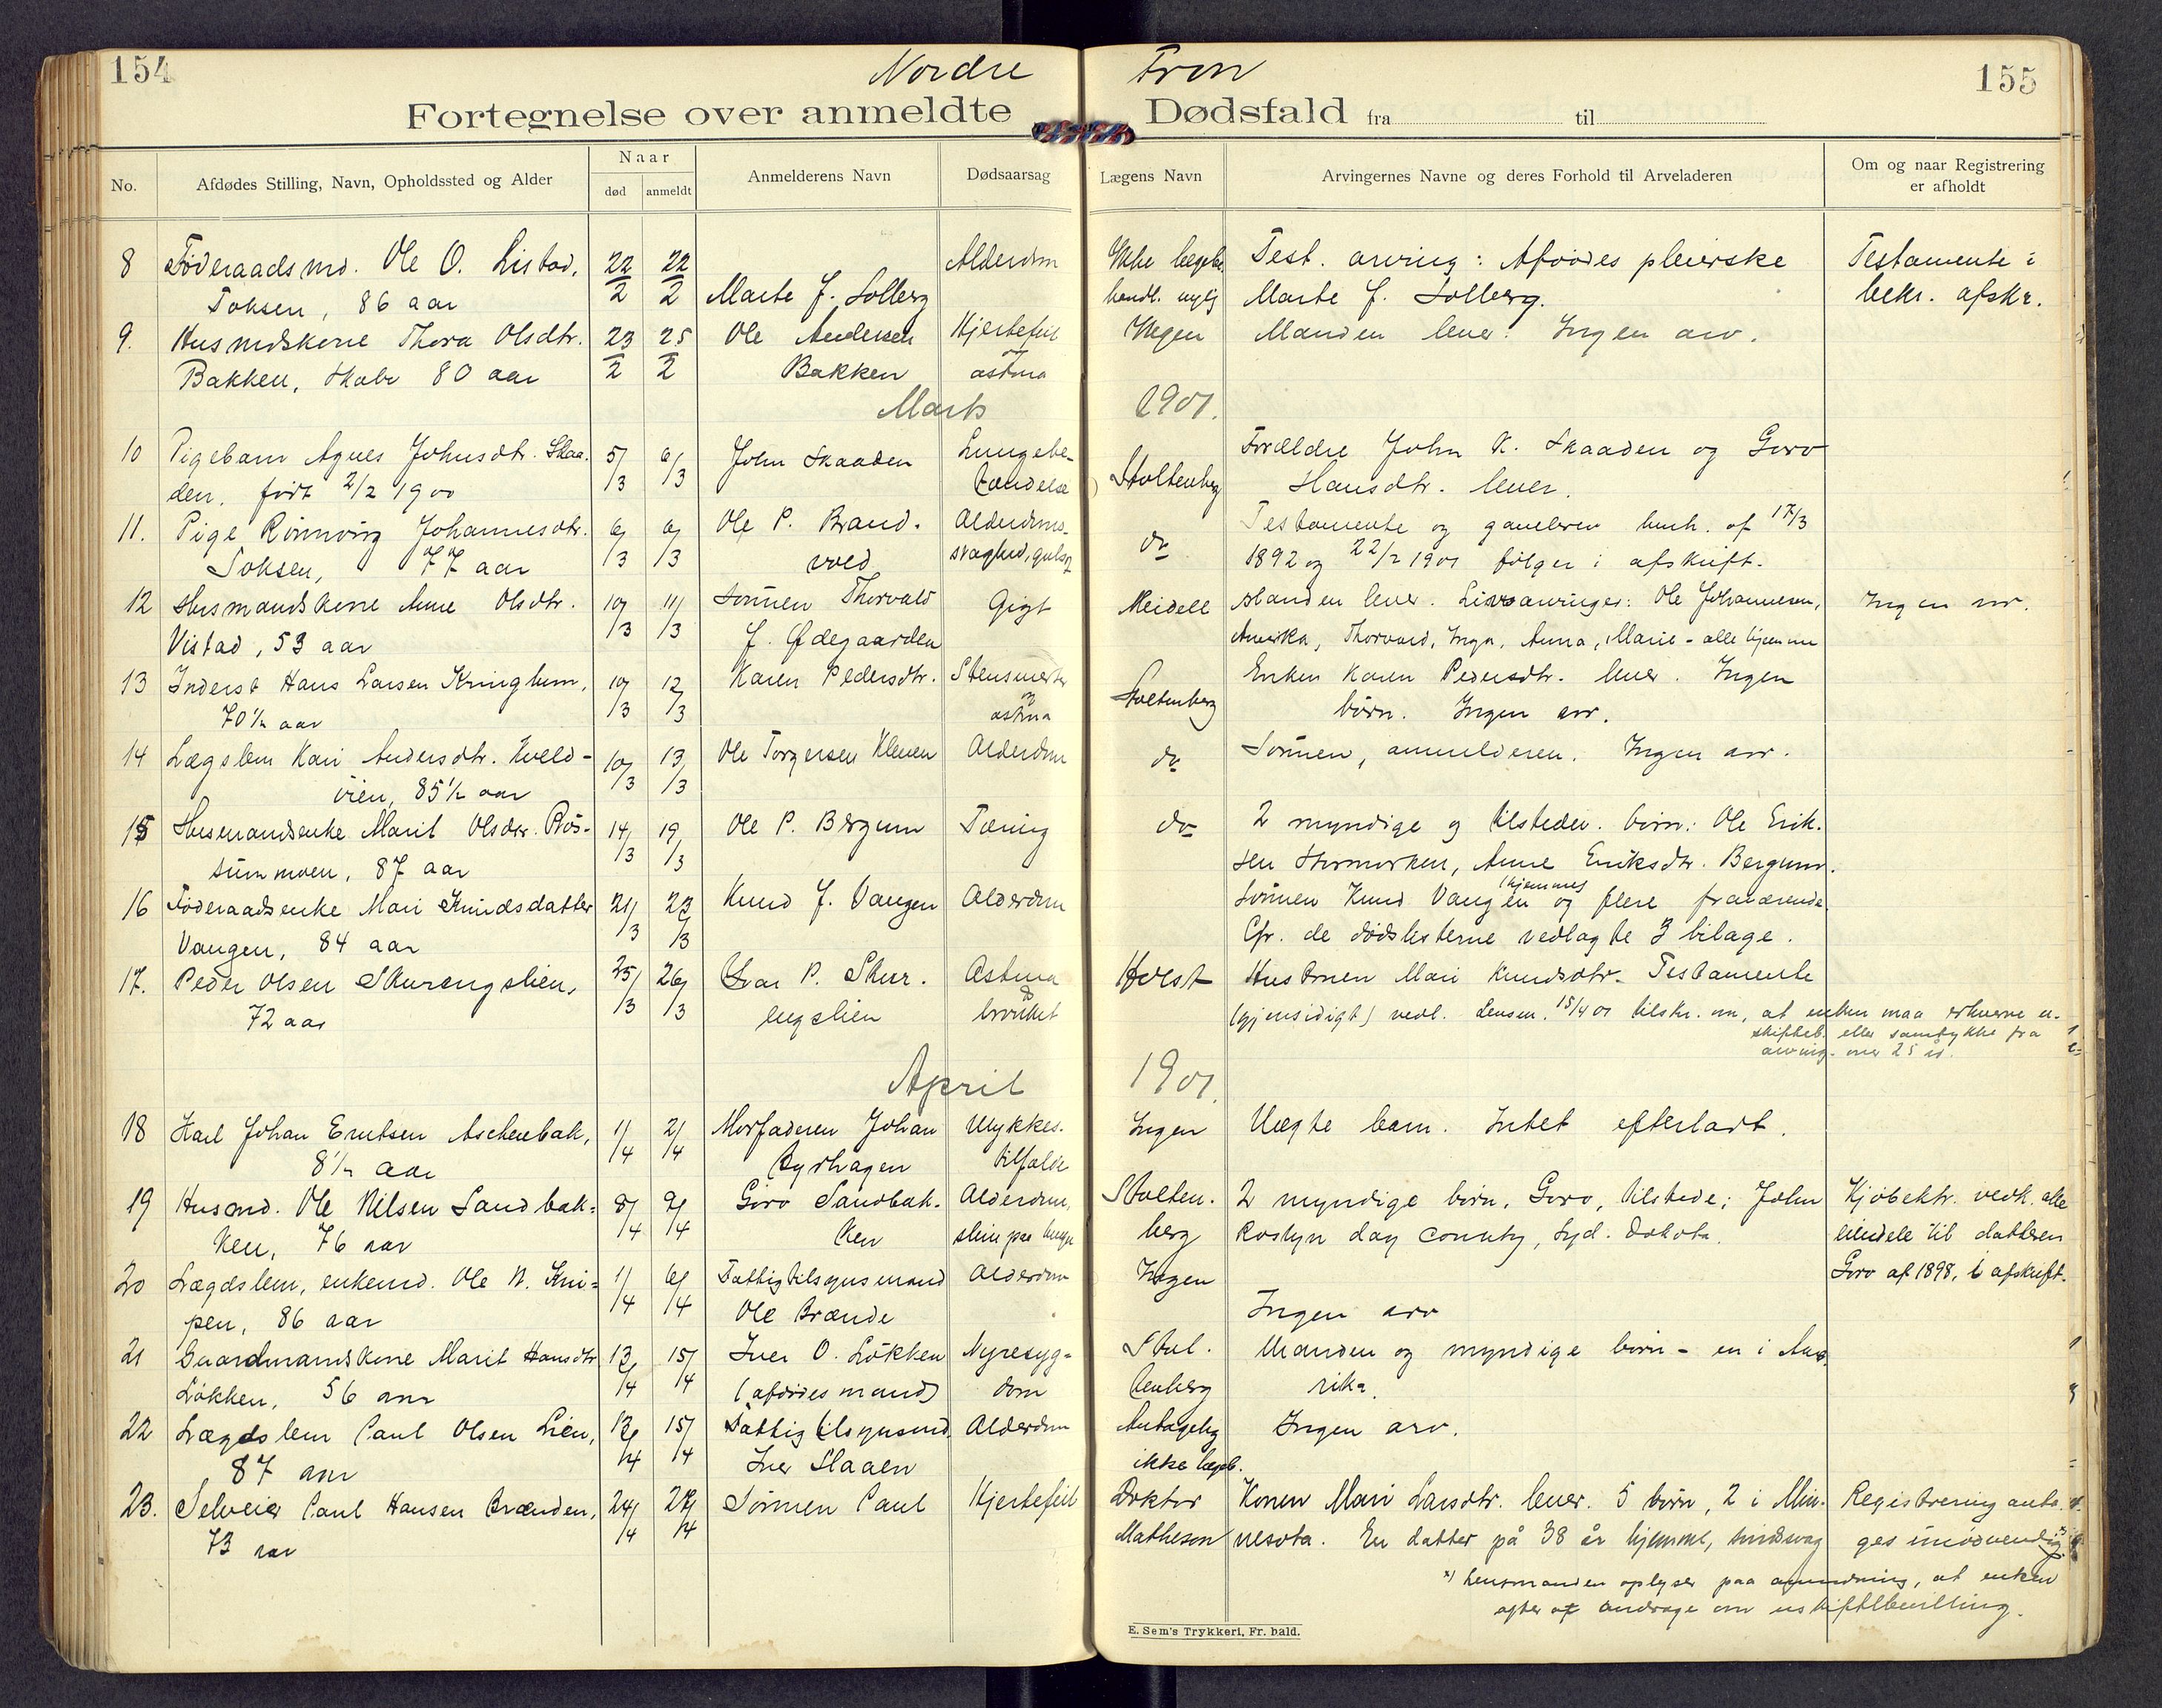 154
Nordre Fron
155
Fortegnelse over anmeldte Dødsfald fra til
No.
Afdødes Stilling, Navn, Opholdssted og Alder
Naar
død
anmeldt
Anmelderens Navn
Dødsaarsag
Lægens Navn
Arvingernes Navne og deres Forhold til Arveladeren
Om og naar Registrering
er afholdt
8 Føderaadsmd. Ole O. Listad, 22 22 Alderdom Ikke lægebe. Test. arving: Afdødes pleierske Testamente i
Toksen, 86 aar 2 2 Marte J. Solberg handl. nylig Marte J. Solberg. bekr. afskr.
9. Husmdskone Thora Olsdtr. 23 25 Ole Andersen Hjertefeil Ingen Manden lever. Ingen arv.
Bakken, Skabu 80 aar 2 2 Bakken og astma
Marts 1901.
10 Pigebarn Agnes Johnsdtr. Skaa- 5/ 6/ John Skaaden Lungebe- Stoltenberg Forældre John K. Skaaden og Goro
den, født 2/2 1900 /3 /3 tændelse Hansdtr. lever.
11. Pige Rønnvig Johannesdtr. 6/ 6/ Ole P. Brand- Alderdoms- do Testamente og gavebrev af 17/3
Toksen, 77 aar /3 /3 vold svaghed, gulsot 1892 og 22/2 1901 følger i afskrift.
12 Husmandskone Anne Olsdtr. 10/ 11/ Sønnen Thorvald Gigt Meidell Manden lever. Livsarvinger: Ole Johannesen, Ingen arv.
Vistad, 53 aar /3 /3 J. Ødegaarden Amerika, Thorvald, Inga, Anna, Marie - alle hjemme
13 Inderst Hans Larsen Kringlum, 10/ 12/ Karen Pedersdtr. Stensmerter Stoltenberg Enken Karen Pedersdtr. lever. Ingen
70 1/2 aar /3 /3 og astma børn. Ingen arv.
14 Lægslem Kari Andersdtr. Kveld- 10/ 13/ Ole Torgersen Kleven Alderdom do Sønnen, anmelderen. Ingen arv.
vien, 85 1/2 aar /3 /3
15 Husmandsenke Marit Olsdtr. Røs- 14/ 19/ Ole P. Bergum Tæring do 2 myndige og tilstedev. børn: Ole Erik-
summoen, 87 aar /3 /3 sen Stormorken, Anne Eriksdtr. Bergum.
16 Føderaadsenke Mari Knudsdatter 21/ 23/ Knud J. Vangen Alderdom Sønnen Knud Vangen hjemme og flere fraværende.
Vangen, 84 aar /3 /3 Cfr. de dødslisterne vedlagte 3 bilage.
17. Peder Olsen Skurengslien, 25/ 26/ Ivar P. Skur- Astma Holst Hustruen Mari Knudsdtr. Testamente
72 aar /3 /3 engslien og brøkket (gjensidigt) vedl. Lensm. 15/4 01 tilskr. om, at enken maa erhverve u-
skifteb. eller samtykke fra
arving. over 25 år.
April 1901.
18 Karl Johan Erutsen Aschenbak, 1/ 2/ Morfaderen Johan Ulykkes- Ingen Uægte barn. Intet efterladt.
8 1/2 aar /4 /4 Byrhagen tilfælde
19 Husmd. Ole Nilsen Sandbak- 8/ 9/ Goro Sandbak- Alderdom, Stolten- 2 myndige børn, Goro, tilstede; John Kjøbektr. vedk. alle
ken, 76 aar /4 /4 ken slim paa lunge berg Roslyn day county, Syd. Dakota. eiendele til datteren
20 Lægdslem, enkemd. Ole N. Kni- 1/ 6/ Fattigtilsynsmand Alderdom Ingen Goro af 1898, i afskrift.
pen, 86 aar /4 /4 Ole Brænde Ingen arv
21 Gaardmandskone Marit Hansdtr 13/ 15/ Iver O. Løkken Nyresyg- Stol- Manden og myndige børn - en i Ame-
Løkken, 56 aar /4 /4 (afdødes mand) dom tenberg rika.
22 Lægdslem Paul Olsen Lien, 13/ 15/ Fattigtilsynsmd. Alderdom Antagelig Ingen arv.
87 aar /4 /4 Iver Slaaen ikke lægeb.
23. Selveier Paul Hansen Brænden, 24/ 27/ Sønnen Paul Hjertefeil Doktor Konen Mari Larsdtr. lever. 5 børn, 2 i Min- Registrering anta-
73 aar /4 /4 Matheson nesota. En datter på 38 år hjemme, sindssvag ges unødvendig. x)
x) Lensmanden oplyser paa anmodning, at enken
agter at andrage om uskiftebevilling.
E. Sem's Trykkeri, Fr. hald.